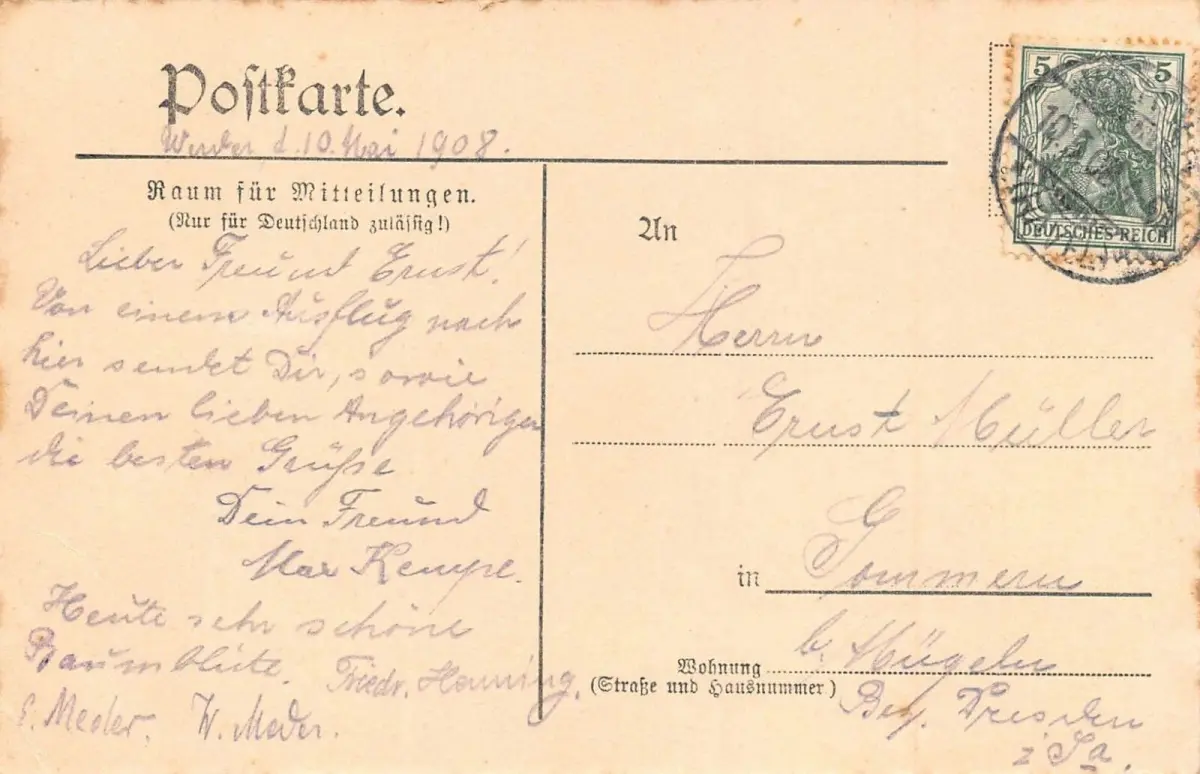 Postkarte.
Werder d. 10. Mai 1908.
Raum für Mitteilungen.
(Nur für Deutschland zulässig!)
Lieber Freund Ernst!
Von einem Ausflug nach
hier sendet Dir, sowie
Deinen lieben Angehörigen
die besten Grüße
Dein Freund
Max Kempe.
Heute sehr schöne
Baumblüte.
Friedr. Henning.
E. Meder. W. Meder.
5 5
DEUTSCHES REICH
An
Herrn
Ernst Müller
in Gommern
b. Mügeln
Wohnung
(Straße und Hausnummer)
Bez. Dresden
i. Sa.